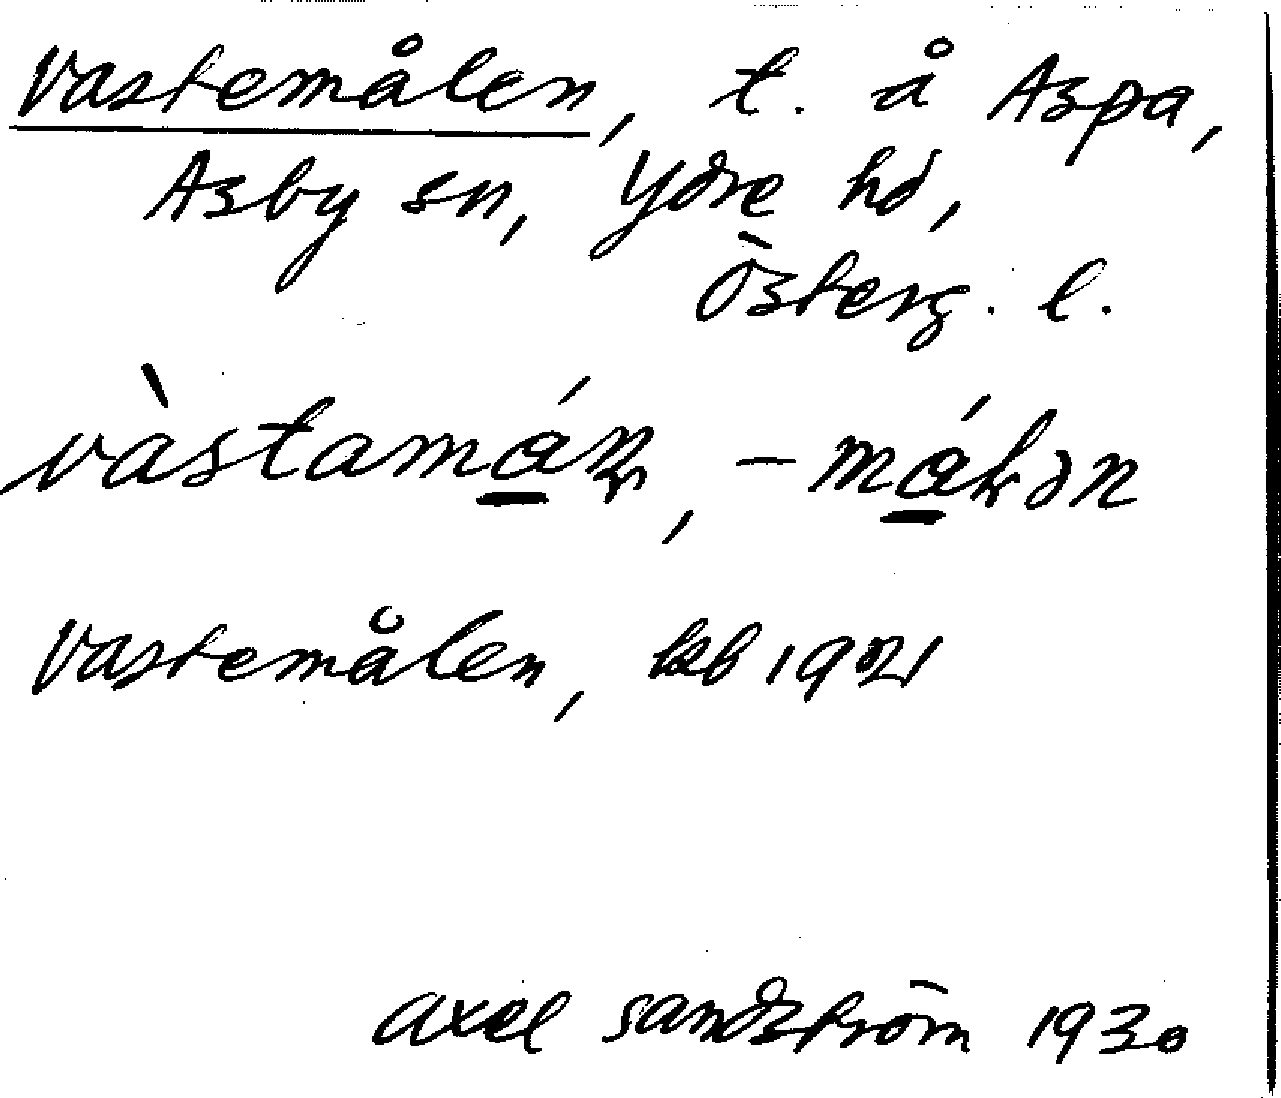 Vastemålen, t. å Aspa,
Asby sn, Ydre hd,
Österg. l.
Vastemålen, kb 1921
Axel Sandström 1930